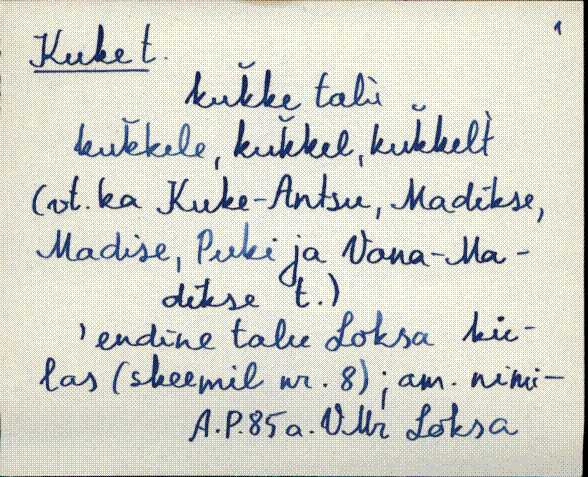 1
Kuke t.
kuk̆ke talù
kuk̆kele, kuk̆kel, kuk̆kelt̀
(vt. ka Kuke-Antsu, Madikse,
Madise, Puki ja Vana-Ma-
dikse t.)
'endine talu Loksa kü-
las (skeemil nr. 8); am. nimi-
A.P. 85 a. VMr Loksa